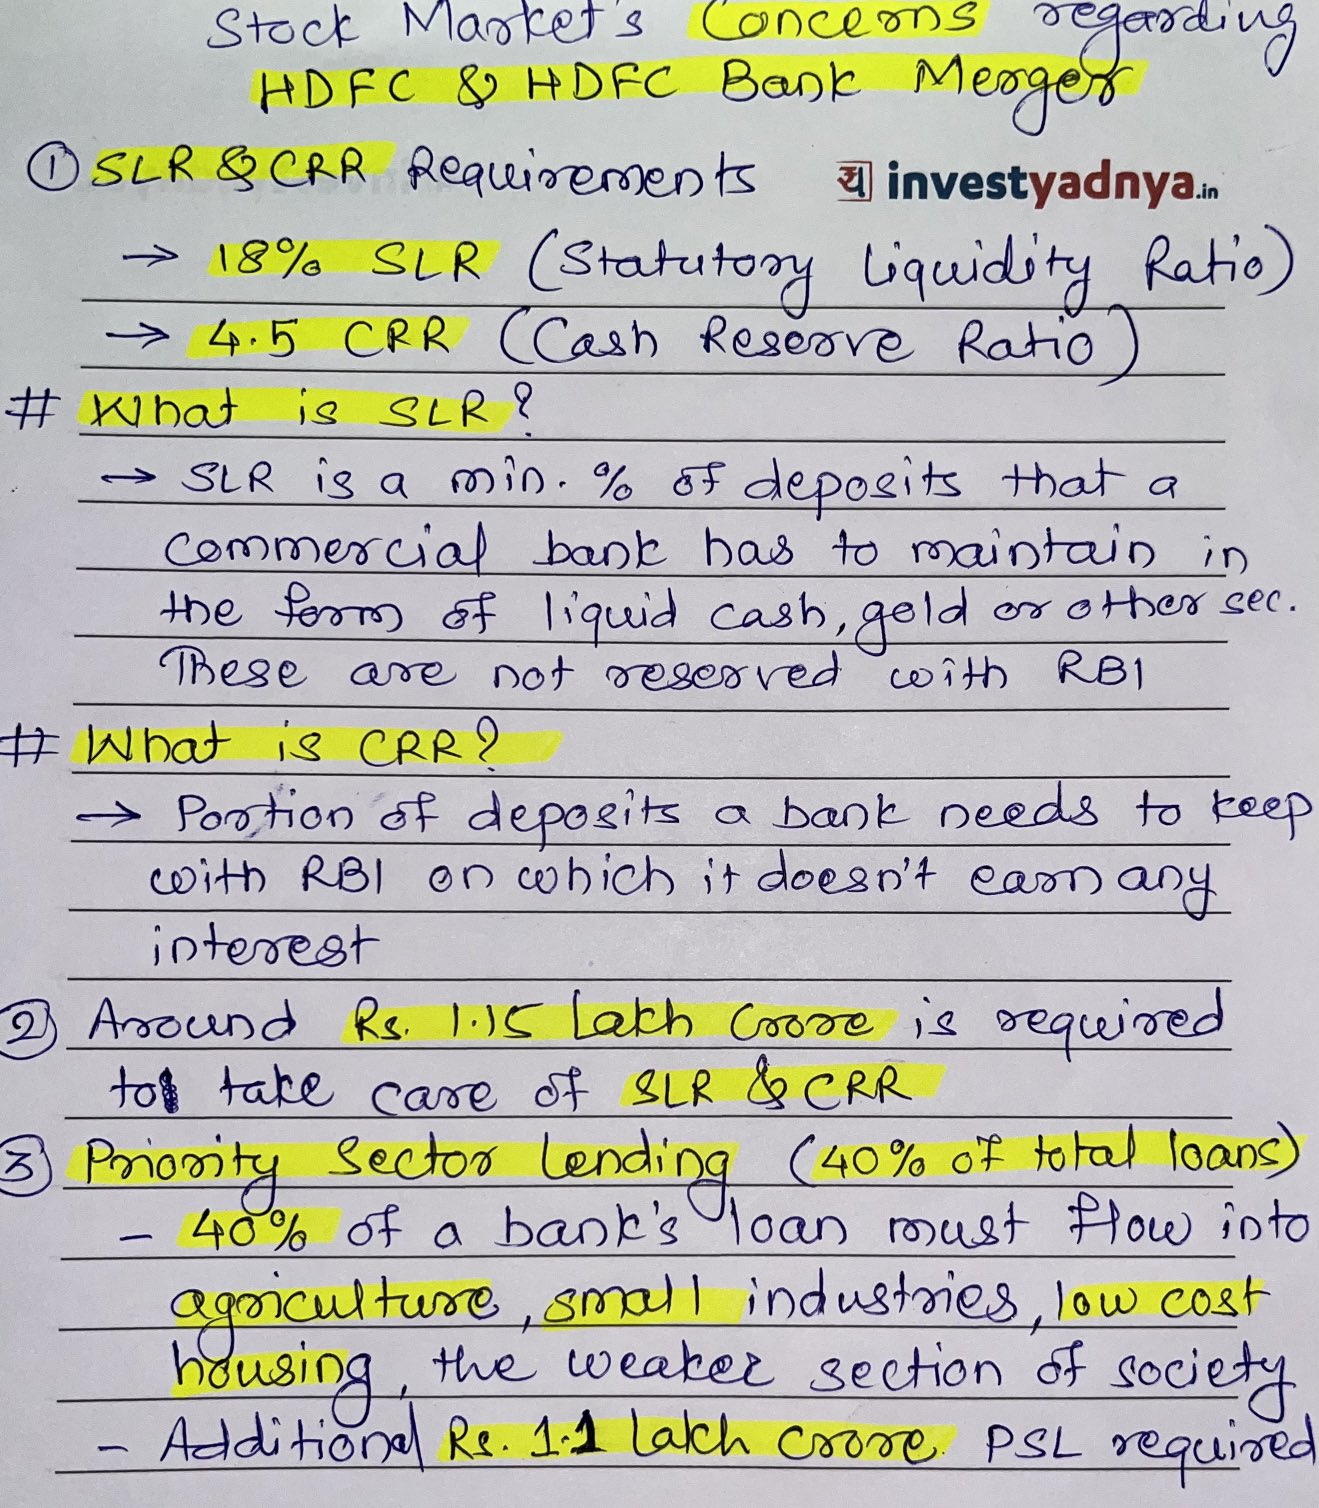 Stock Market's Concerns regarding
HDFC & HDFC Bank Merger
① SLR & CRR Requirements
य investyadnya.in
→ 18% SLR (Statutory Liquidity Ratio)
→ 4.5 CRR (Cash Reserve Ratio)
# What is SLR?
→ SLR is a min. % of deposits that a
commercial bank has to maintain in
the form of liquid cash, gold or other sec.
These are not reserved with RBI
# What is CRR?
→ Portion of deposits a bank needs to keep
with RBI on which it doesn't earn any
interest
② Around Rs. 1.15 Lakh Crore is required
to take care of SLR & CRR
③ Priority Sector Lending (40% of total loans)
- 40% of a bank's loan must flow into
agriculture, small industries, low cost
housing, the weaker section of society
- Additional Rs. 1.1 Lakh crore PSL required